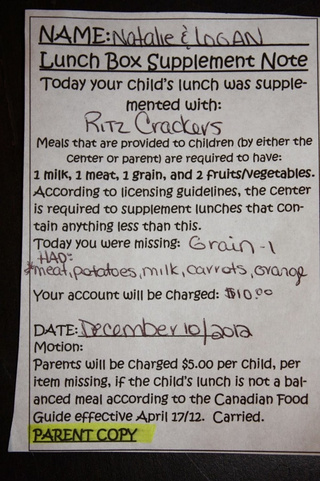 NAME: Natalie & LOGAN
Lunch Box Supplement Note
Today your child's lunch was supple-
mented with:
RITZ Crackers
Meals that are provided to children (by either the
center or parent) are required to have:
1 milk, 1 meat, 1 grain, and 2 fruits/vegetables.
According to licensing guidelines, the center
is required to supplement lunches that con-
tain anything less than this.
Today you were missing: Grain - 1
HAD:
*meat, potatoes, milk, carrots, orange
Your account will be charged: $10.00
DATE: December 10/2012
Motion:
Parents will be charged $5.00 per child, per
item missing, if the child's lunch is not a bal-
anced meal according to the Canadian Food
Guide effective April 17/12. Carried.
PARENT COPY